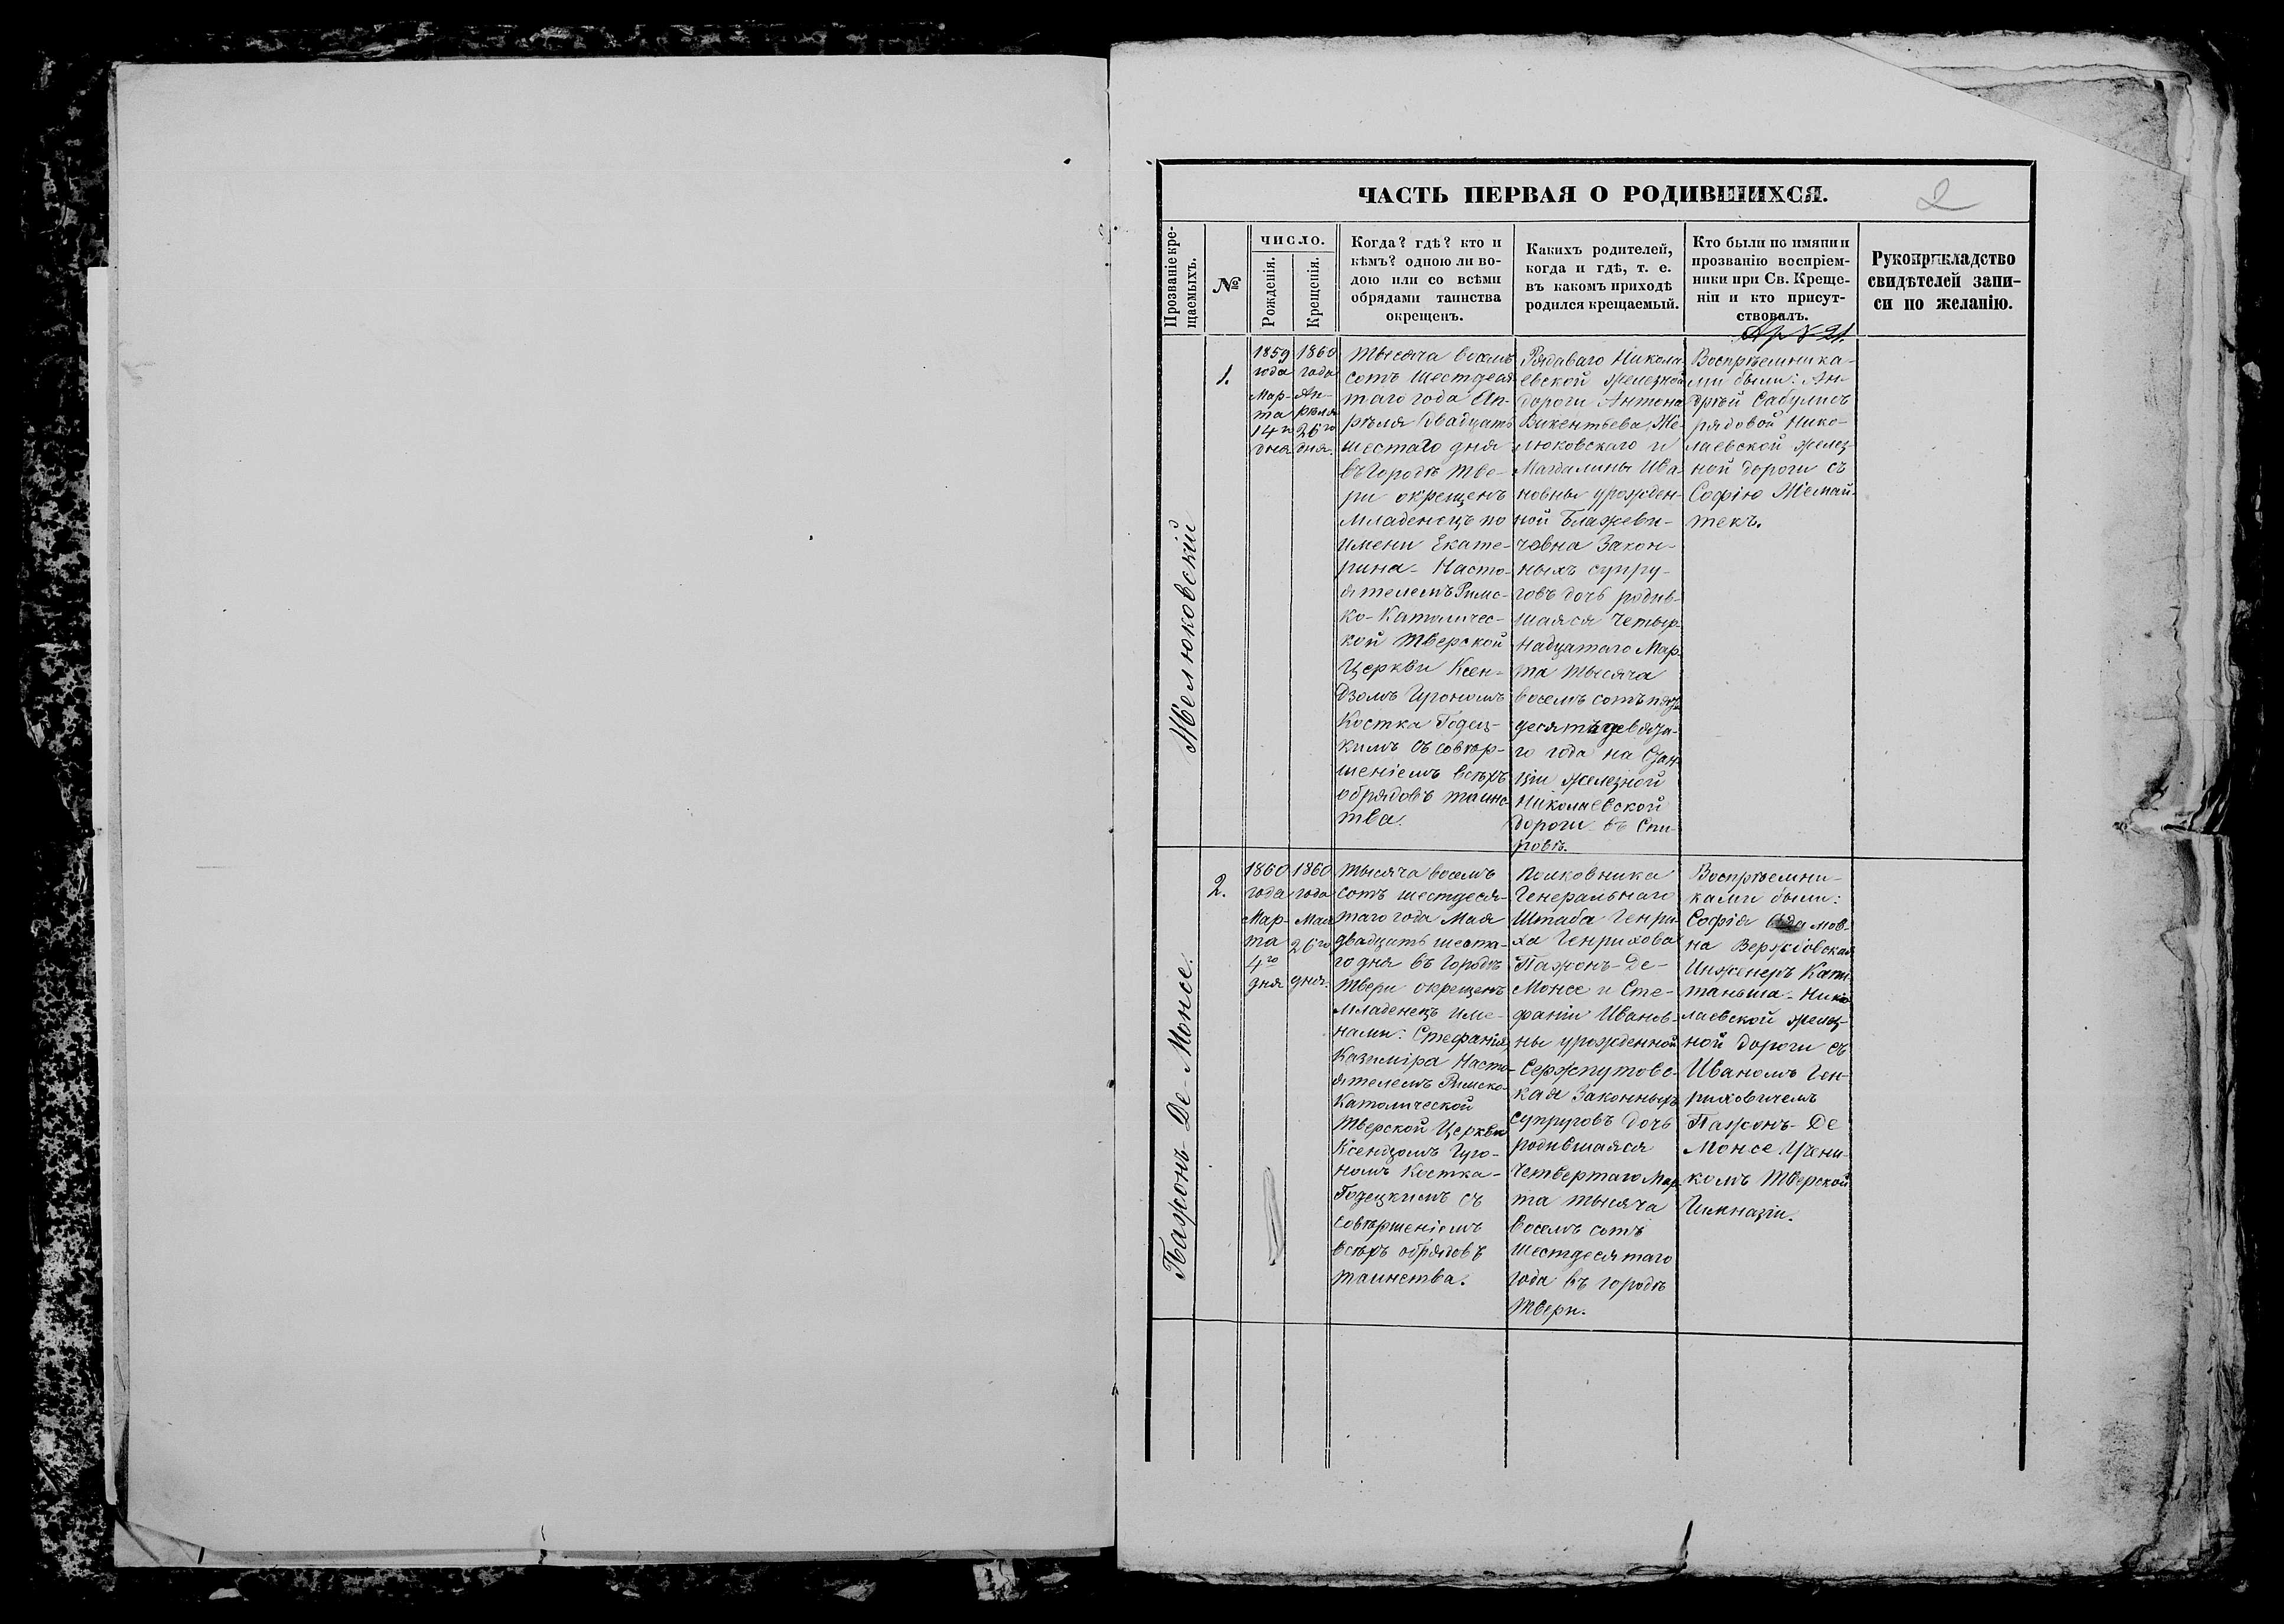 ЧАСТЬ ПЕРВАЯ О РОДИВШИХСЯ.
2
Прозваніе кре-
щаемыхъ.
№
ЧИСЛО.
Рожденія.
Крещенія.
Когда? гдѣ? кто и
кѣмъ? одною ли во-
дою или со всѣми
обрядами таинства
окрещенъ.
Какихъ родителей,
когда и гдѣ, т. е.
въ какомъ приходѣ
родился крещаемый.
Кто были по имяни и
прозванію воспріем-
ники при Св. Креще-
ніи и кто присут-
ствовалъ.
Рукоприкладство
свидѣтелей запи-
си по желанію.
Жемюковскій
1.
1859
года
Мар-
та
14го
дня
1860
года
Ап-
рѣля
26го
дня.
Тысяча восемъ
сотъ шестдеся
таго года Ап-
рѣля двадцать
шестаго дня
въ Городѣ Тве-
ри окрещенъ
Младенецъ по
имени Екате-
рина - Насто-
ятелемъ Римс-
ко-Католичес-
кой Тверской
Церкви Ксен-
дзомъ
Костка Годец-
кимъ съ совѣр-
шеніемъ всѣхъ
обрядовъ таинс-
тва.
Рядаваго Никола-
евской железной
дороги Антона
Викентьева Же-
люковскаго и
Магдалины Ива
новны урожден-
ной Блажеви-
човна Закон-
ныхъ супру-
говъ дочь родив-
шаяся Четыр-
надцатаго Мар-
та тысяча
восемъ сотъ
го года на Стан
ціи железной
Николаевской
дороги въ Спи-
ровѣ.
Воспрѣемника-
ми были: Ан-
дрѣй Сабулисъ
рядовой Нико-
лаевской желез
ной дороги съ
Софіею Жемай-
текъ.
Пажонъ-Де-Монсе.
2.
1860
года
Мар-
та
4го
дня
1860
года
Мая
26го
дня.
Тысяча восемъ
сотъ шестдеся-
таго года Мая
двадцать шеста-
го дня въ Городѣ
Твери окрещенъ
Младенецъ име-
нами: Стефанія
Казиміра Насто-
ятелемъ Римско-
Католической
Тверской Церкви
Ксендзомъ
Костка-
Годецкимъ съ
совѣршеніемъ
всѣхъ обрядовъ
таинства.
Полковника
Генеральнаго
Штаба Генри-
ха Генрихова
Пажонъ-Де-
Монсе и Сте-
фаніи Иванов-
ны урожденной
Сержпутовс-
кая Законныхъ
супруговъ дочь
родившаяся
Четвертаго Мар-
та тысяча
восемъ сотъ
шестдесятаго
года въ городѣ
Твери.
Воспрѣемни-
ками были:
Софія Адамов-
на Вержбовская
Инженеръ Капи-
таньша - Нико
лаевской желез-
ной дороги съ
Иваномъ Ген-
риховичемъ
Пажонъ-Де
Монсе Учени-
комъ Тверской
Гимназіи.